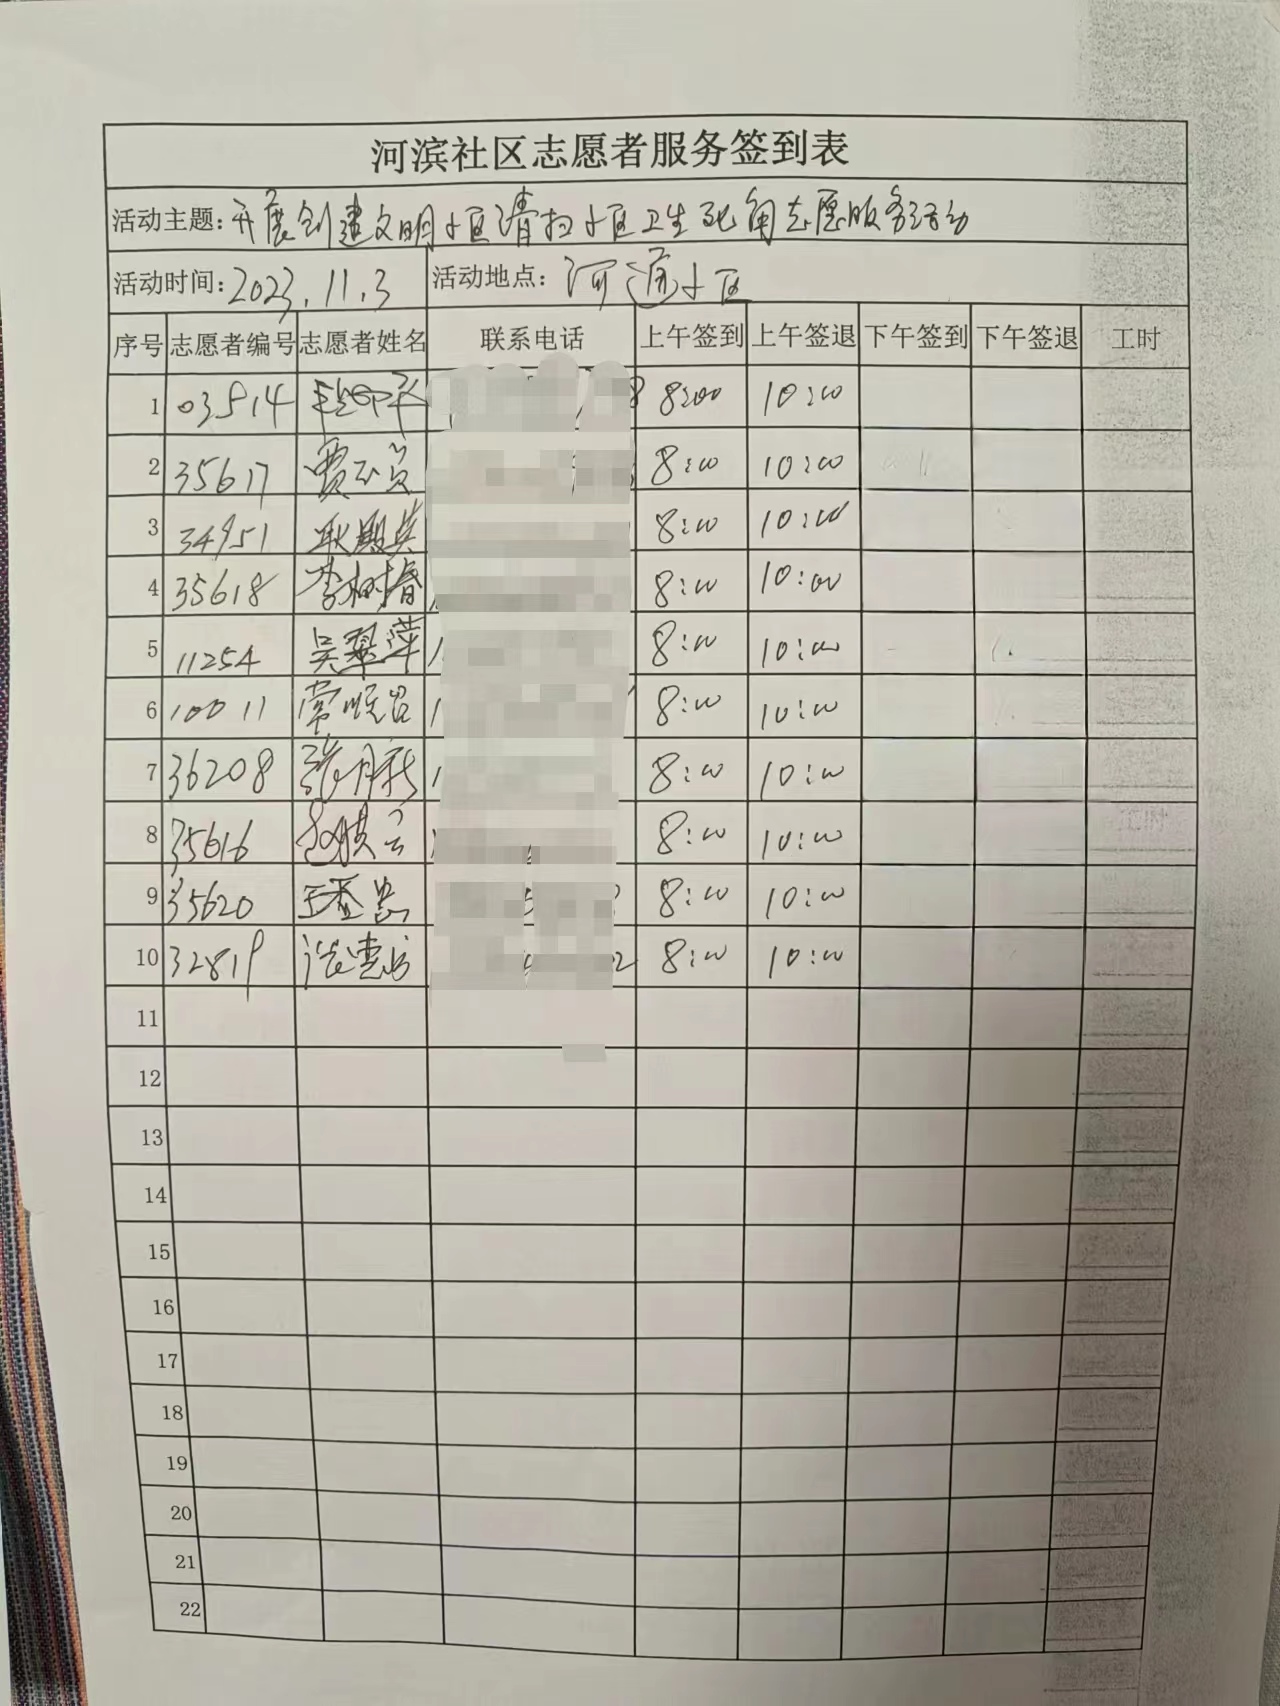 河滨社区志愿者服务签到表
活动主题：开展创建文明小区清扫小区卫生死角志愿服务活动
活动时间：2023.11.3 活动地点：河通小区
序号 志愿者编号 志愿者姓名 联系电话 上午签到 上午签退 下午签到 下午签退 工时
1 03514 8:00 10:00
2 35617 贾 8:00 10:00
3 34951 耿殿英 8:00 10:00
4 35618 李树春 8:00 10:00
5 11254 吴翠萍 8:00 10:00
6 10011 常顺 8:00 10:00
7 36208 张月新 8:00 10:00
8 35616 赵 云 8:00 10:00
9 35620 王 8:00 10:00
10 32819 8:00 10:00
11
12
13
14
15
16
17
18
19
20
21
22